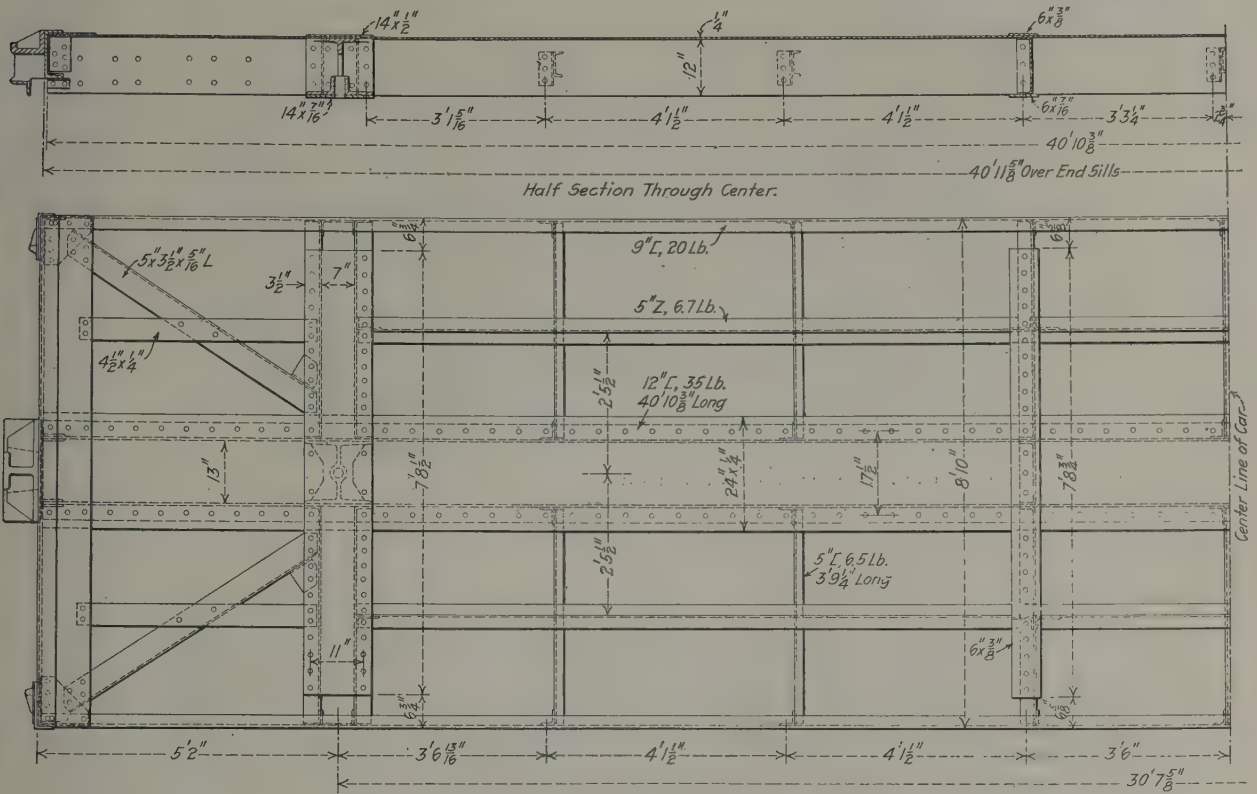 14"x 1/2"
1/4"
6"x 3/8"
12"
14"x 7/16"
6"x 7/16"
3' 1 5/16"
4' 1 1/2"
4' 1 1/2"
3' 3 1/4"
40' 10 3/8"
40' 11 5/8" Over End Sills
Half Section Through Center.
6 3/4"
9"[, 20 Lb.
6 5/8"
5"x 3 1/2"x 5/16" L
3 1/2"
7"
5"Z, 6.7 Lb.
4 1/2"x 1/4"
2' 5 1/2"
12"[, 35 Lb.
40' 10 3/8" Long
13"
7' 8 1/2"
24"x 1/4"
17 1/2"
8' 10"
7' 8 3/4"
Center Line of Car
2' 5 1/2"
5"[, 6.5 Lb.
3' 9 1/4" Long
11"
6"x 3/8"
6 3/4"
6 5/8"
5' 2"
3' 6 13/16"
4' 1 1/2"
4' 1 1/2"
3' 6"
30' 7 5/8"